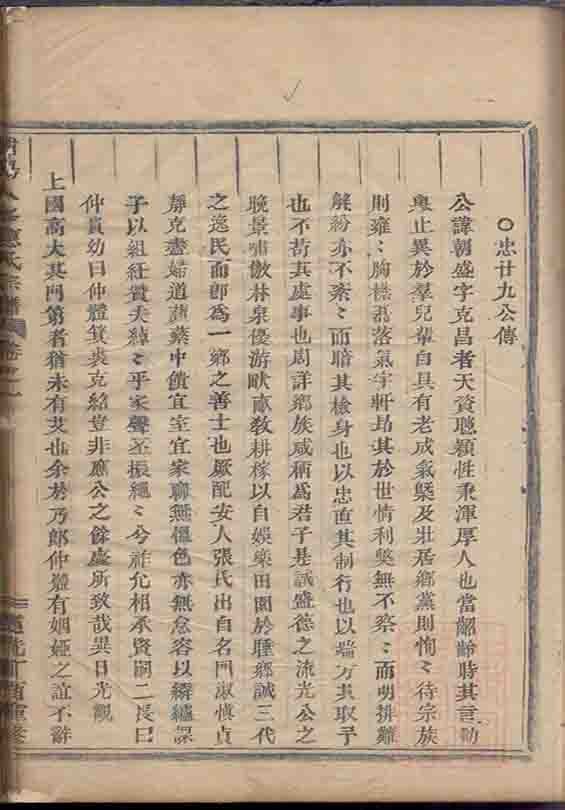 忠廿九公傳
公諱朝盛字克昌者天資聰穎性秉渾厚人也當齠齡時其言動
舉止異於羣兒輩自具有老成氣槩及壯居鄉黨則恂〻待宗族
則雍〻胸襟磊落氣宇軒昂其於世情利獘無不察〻而明排難
解紛亦不紊〻而暗其檢身也以忠直其制行也以端方其取予
也不苟其處事也周詳鄉族咸稱爲君子是誠盛德之流光公之
晚景嘯傲林泉優游畎畝敎耕稼以自娛樂田園於睡鄉誠三代
之逸民而卽爲一鄉之善士也厥配安人張氏出自名門淑慎貞
靜克盡婦道蘋蘩中饋宜室宜家毫無慍色亦無怠容以績纑課
子以組紝贊夫綽〻乎家聲丕振繩〻兮祚允相承賢嗣二長曰
仲貴幼曰仲體箕裘克紹豈非應公之餘慶所致哉異日光觀
上國高大其門第者猶未有艾也余於乃郎仲體有姻婭之誼不辭
應氏宗譜
道光丁酉重修